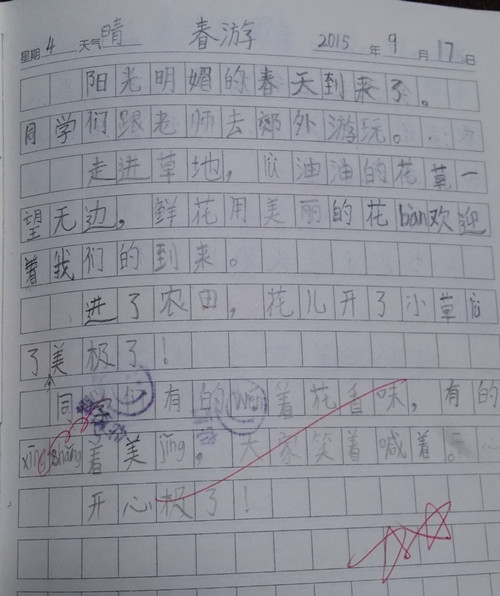 星期 4 天气 晴 春游 2015 年 9 月 17 日
阳光明媚的春天到来了。
同学们跟老师去郊外游玩。
走进草地，油油的花草一
望无边，鲜花用美丽的花bàn欢迎
着我们的到来。
进了农田，花儿开了小草
了美极了！
同学们有的wén着花香味，有的
xīn shǎng着美jǐng。大家笑着喊着。
开心极了！